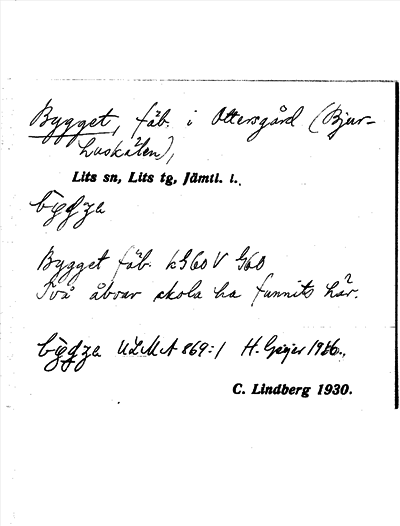 Bygget, fäb. i Ottersgård (Bjur-
huskälen),
Lits sn, Lits tg, Jämtl. l.
Bygget fäb.
Två åboar skola ha funnits här.
ULMA 869:1 H. Geijer
C. Lindberg 1930.